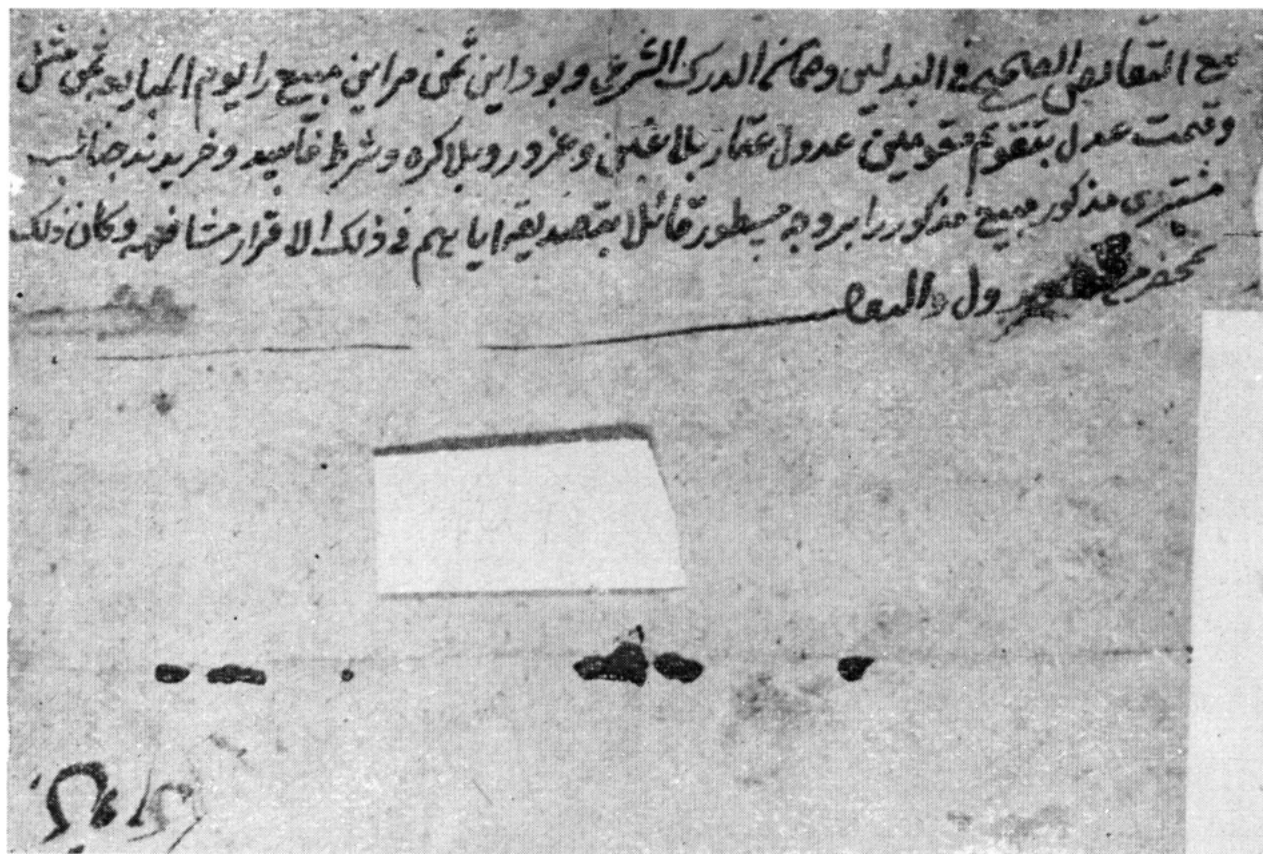 مع التقابض الصحيح فی البدلین وضمان الدرک الشرعی و بود این ثمن مراین مبیع را یوم المبایعه ثمن مثل
وقیمت عدل بتقویم مقومین عدول عقار بلا غبن و غرور و بلا کره و شرط فاسد و خریدند جناب
مشتری مذکور مبیع مذکور را بر وجه مسطور قائلا بتصدیقه ایاهم فی ذلک الاقرار مشافهه وکان ذلک
بمحضر من